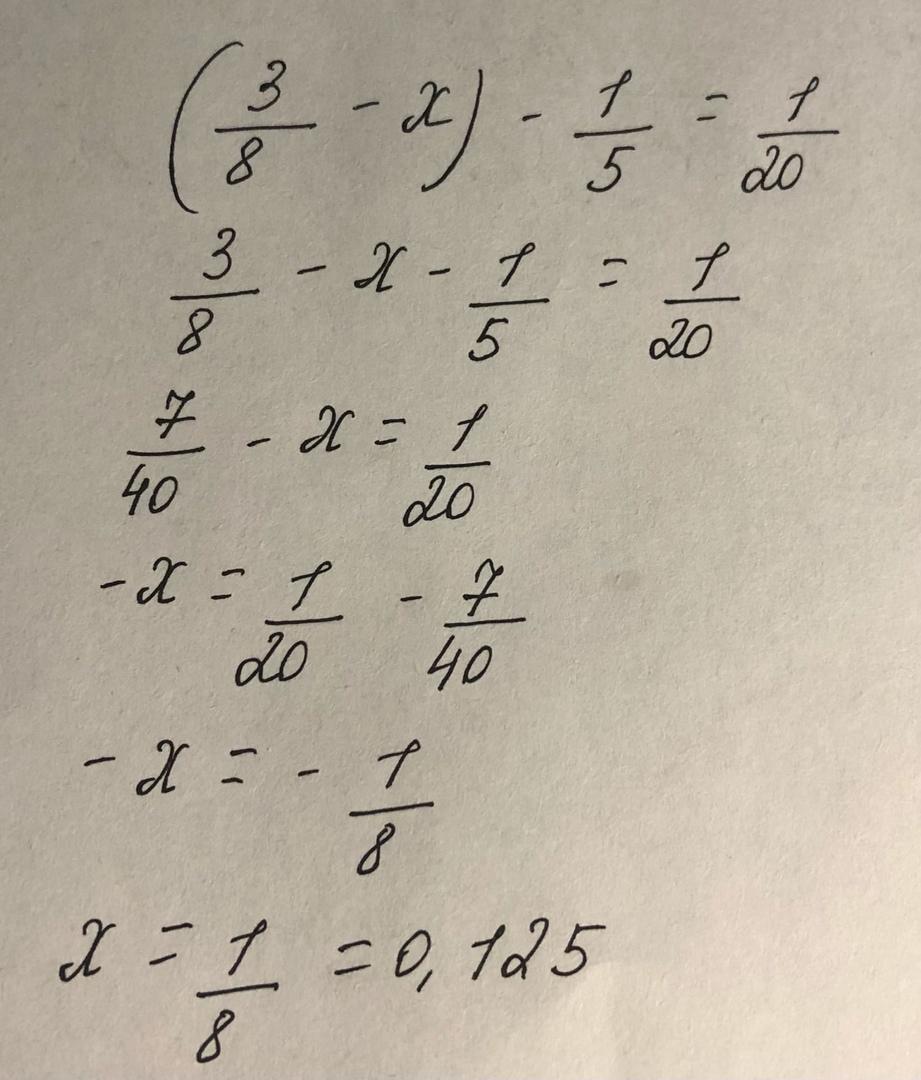 (3/8 - x) - 1/5 = 1/20
3/8 - x - 1/5 = 1/20
7/40 - x = 1/20
-x = 1/20 - 7/40
-x = - 1/8
x = 1/8 = 0,125